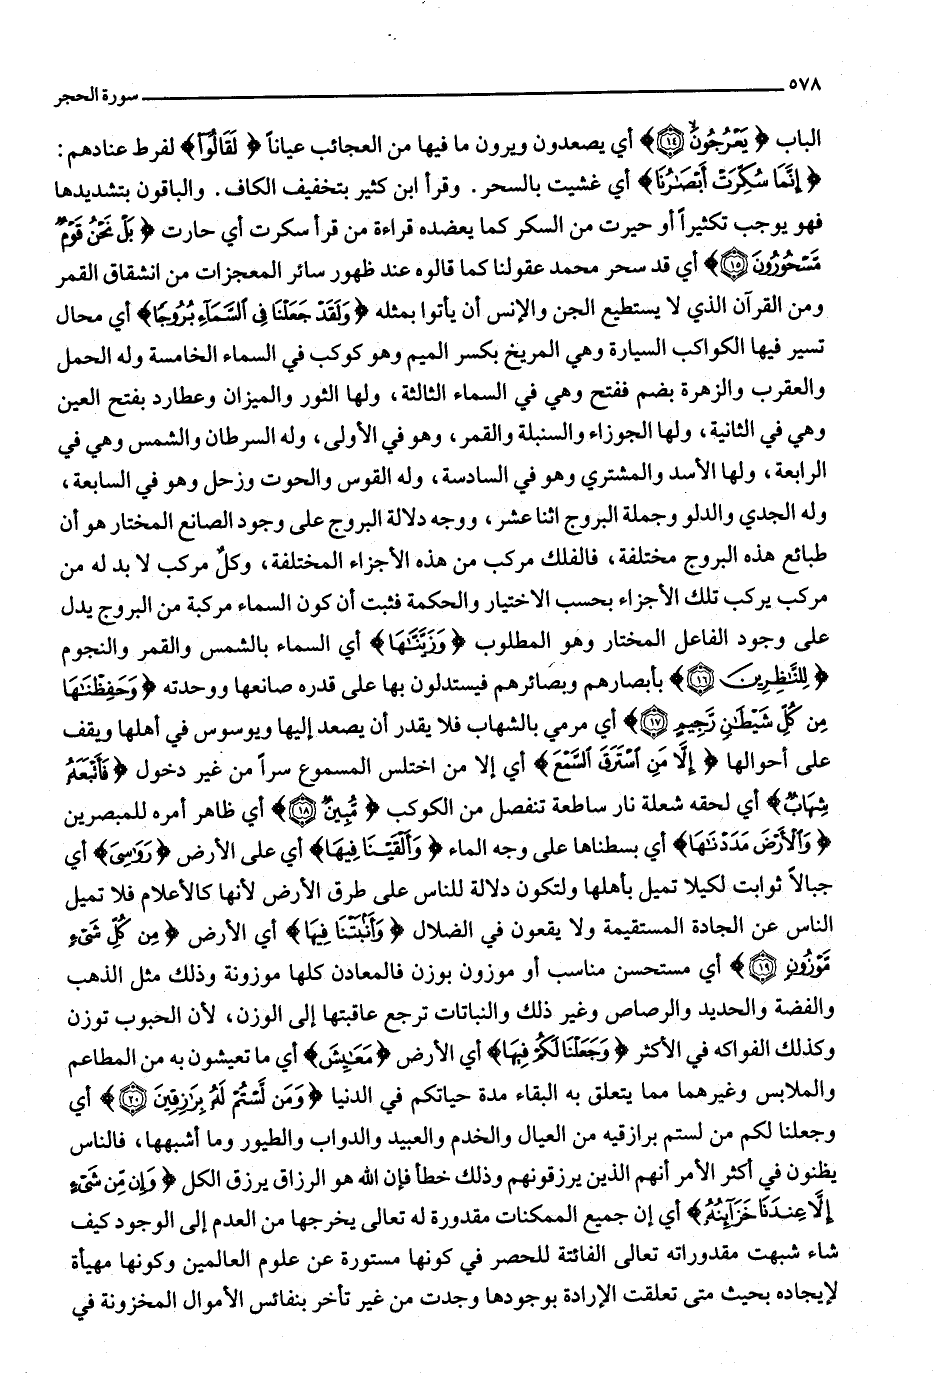 ٥٧٨ سورة الحجر
الباب ﴿ يَعْرُجُونَ ۝١٤ ﴾ أي يصعدون ويرون ما فيها من العجائب عياناً ﴿ لَقَالُوٓا۟ ﴾ لفرط عنادهم :
﴿ إِنَّمَا سُكِّرَتْ أَبْصَٰرُنَا ﴾ أي غشيت بالسحر . وقرأ ابن كثير بتخفيف الكاف . والباقون بتشديدها
فهو يوجب تكثيراً أو حيرت من السكر كما يعضده قراءة من قرأ سكرت أي حارت ﴿ بَلْ نَحْنُ قَوْمٌ
مَّسْحُورُونَ ۝١٥ ﴾ أي قد سحر محمد عقولنا كما قالوه عند ظهور سائر المعجزات من انشقاق القمر
ومن القرآن الذي لا يستطيع الجن والإنس أن يأتوا بمثله ﴿ وَلَقَدْ جَعَلْنَا فِى ٱلسَّمَآءِ بُرُوجًا ﴾ أي محال
تسير فيها الكواكب السيارة وهي المريخ بكسر الميم وهو كوكب في السماء الخامسة وله الحمل
والعقرب والزهرة بضم ففتح وهي في السماء الثالثة ، ولها الثور والميزان وعطارد بفتح العين
وهي في الثانية ، ولها الجوزاء والسنبلة والقمر ، وهو في الأولى ، وله السرطان والشمس وهي في
الرابعة ، ولها الأسد والمشتري وهو في السادسة ، وله القوس والحوت وزحل وهو في السابعة ،
وله الجدي والدلو وجملة البروج اثنا عشر ، ووجه دلالة البروج على وجود الصانع المختار هو أن
طبائع هذه البروج مختلفة ، فالفلك مركب من هذه الأجزاء المختلفة ، وكلٌ مركب لا بد له من
مركب يركب تلك الأجزاء بحسب الاختيار والحكمة فثبت أن كون السماء مركبة من البروج يدل
على وجود الفاعل المختار وهو المطلوب ﴿ وَزَيَّنَّٰهَا ﴾ أي السماء بالشمس والقمر والنجوم
﴿ لِلنَّٰظِرِينَ ۝١٦ ﴾ بأبصارهم وبصائرهم فيستدلون بها على قدره صانعها ووحدته ﴿ وَحَفِظْنَٰهَا
مِن كُلِّ شَيْطَٰنٍ رَّجِيمٍ ۝١٧ ﴾ أي مرمي بالشهاب فلا يقدر أن يصعد إليها ويوسوس في أهلها ويقف
على أحوالها ﴿ إِلَّا مَنِ ٱسْتَرَقَ ٱلسَّمْعَ ﴾ أي إلا من اختلس المسموع سراً من غير دخول ﴿ فَأَتْبَعَهُۥ
شِهَابٌ ﴾ أي لحقه شعلة نار ساطعة تنفصل من الكوكب ﴿ مُّبِينٌ ۝١٨ ﴾ أي ظاهر أمره للمبصرين
﴿ وَٱلْأَرْضَ مَدَدْنَٰهَا ﴾ أي بسطناها على وجه الماء ﴿ وَأَلْقَيْنَا فِيهَا ﴾ أي على الأرض ﴿ رَوَٰسِىَ ﴾ أي
جبالاً ثوابت لكيلا تميل بأهلها ولتكون دلالة للناس على طرق الأرض لأنها كالأعلام فلا تميل
الناس عن الجادة المستقيمة ولا يقعون في الضلال ﴿ وَأَنۢبَتْنَا فِيهَا ﴾ أي الأرض ﴿ مِن كُلِّ شَىْءٍ
مَّوْزُونٍ ۝١٩ ﴾ أي مستحسن مناسب أو موزون بوزن فالمعادن كلها موزونة وذلك مثل الذهب
والفضة والحديد والرصاص وغير ذلك والنباتات ترجع عاقبتها إلى الوزن ، لأن الحبوب توزن
وكذلك الفواكه في الأكثر ﴿ وَجَعَلْنَا لَكُمْ فِيهَا ﴾ أي الأرض ﴿ مَعَٰيِشَ ﴾ أي ما تعيشون به من المطاعم
والملابس وغيرهما مما يتعلق به البقاء مدة حياتكم في الدنيا ﴿ وَمَن لَّسْتُمْ لَهُۥ بِرَٰزِقِينَ ۝٢٠ ﴾ أي
وجعلنا لكم من لستم برازقيه من العيال والخدم والعبيد والدواب والطيور وما أشبهها ، فالناس
يظنون في أكثر الأمر أنهم الذين يرزقونهم وذلك خطأ فإن الله هو الرزاق يرزق الكل ﴿ وَإِن مِّن شَىْءٍ
إِلَّا عِندَنَا خَزَآئِنُهُۥ ﴾ أي إن جميع الممكنات مقدورة له تعالى يخرجها من العدم إلى الوجود كيف
شاء شبهت مقدوراته تعالى الفائتة للحصر في كونها مستورة عن علوم العالمين وكونها مهيأة
لإيجاده بحيث متى تعلقت الإرادة بوجودها وجدت من غير تأخر بنفائس الأموال المخزونة في